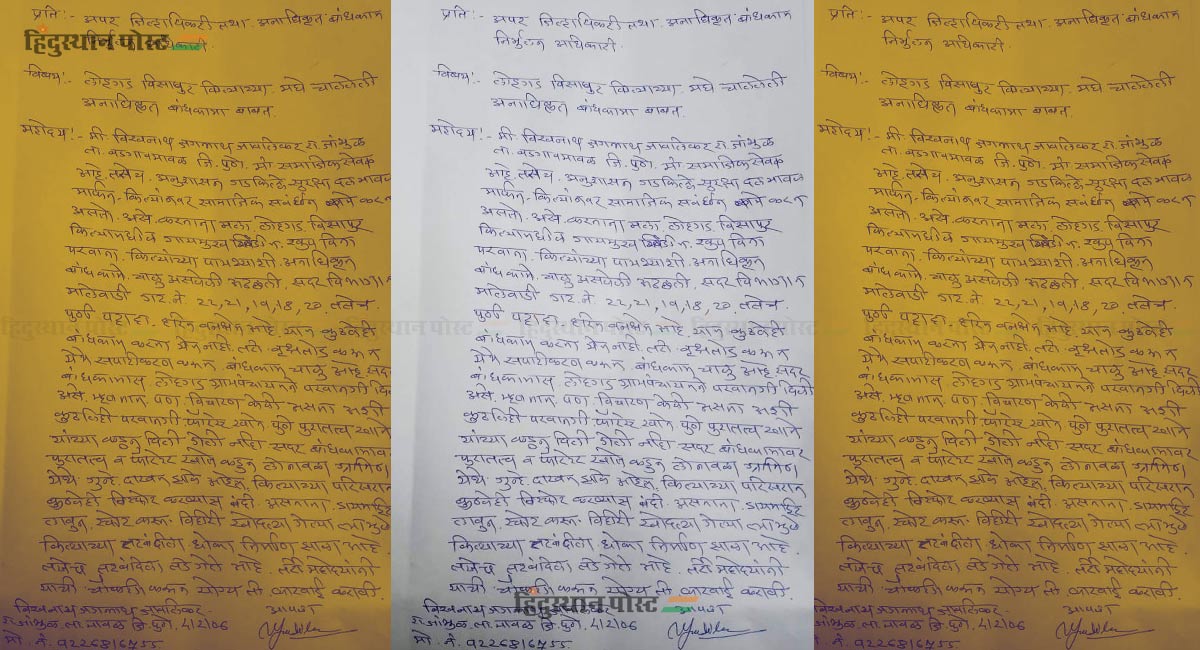 प्रति:- अपर जिल्हाधिकारी तथा अनाधिकृत बांधकाम
निर्मुलन अधिकारी.
विषय:- लोहगड विसापुर किल्याच्या मधे चाललेली
अनाधिकृत बांधकामा बाबत.
महोदय:- मी विश्वनाथ जगन्नाथ जावलिकर रा. जांभुळ
ता. वडगावमावळ जि. पुणे. मी सामाजिक सेवक
आहे तसेच अनुशासन गडकिल्ले सुरक्षा दल मावळ
मार्फत किल्यांवर सामाजिक संवर्धन कामे करत
असतो. असे करताना मला लोहगड विसापुर
किल्यामधील गायमुख खिंडी विना
परवाना किल्याच्या पायथ्याशी अनाधिकृत
बांधकामे चालु असलेली आढळली, सदर विभागात
मालेवाडी गट नं 22,21,19,18,20 तसेच
पुर्ण पट्टाहा आहे कुठलेही
बांधकाम करता येत नाही. तरी वृक्षतोड करून
येथे सपाटीकरण करून बांधकाम चालु आहे सदर
बांधकामास लोहगड ग्रामपंचायतने परवानगी दिली
असे म्हणतात पण विचारणा केली असता अशी
कुठलिही परवानगी फॉरेस्ट खाते पुणे पुरातत्व खाते
यांच्या कडुन दिली गेली नाही सदर बांधकामावर
पुरातत्व व फॉरेस्ट खाते कडुन लोनावळा ग्रामिण
येथे गुन्हे दाखल झाले आहेत, किल्याच्या परिसरात
कुठलेही विस्फोट करण्यास बंदी असताना
लावुन स्फोट करून विहीरी खोदल्या गेल्या त्यामुळे
किल्याच्या तटबंदीला धोका निर्माण झाला आहे.
तसेच तटबंदिला तडे गेले आहे. तरी महोदयांनी
याची चौकशी करून योग्य ती कारवाई करावी.
विश्वनाथ जगन्नाथ जावलिकर आपला
रा. जांभुळ ता. मावळ जि. पुणे. 412106
मो. नं. 9226816755
हिंदुस्थान पोस्ट